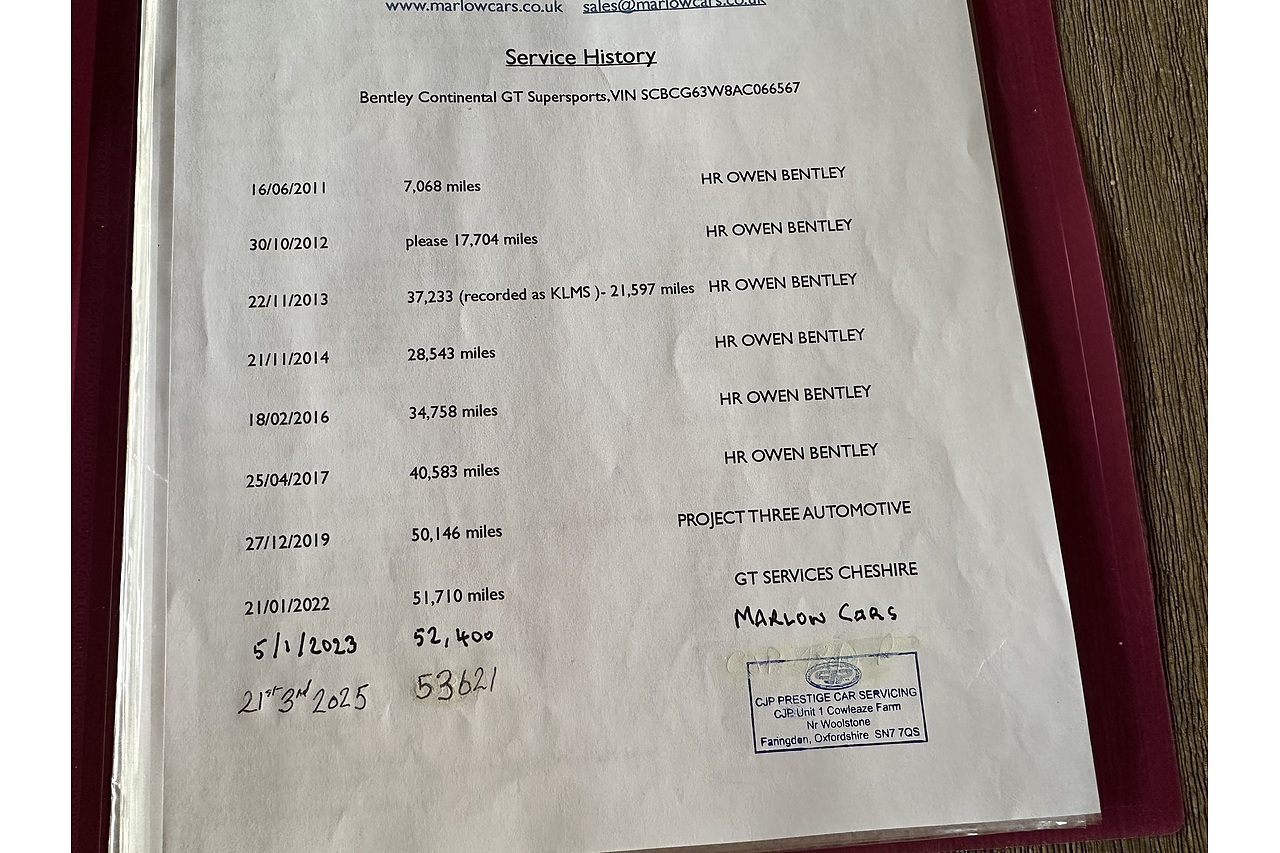 www.marlowcars.co.uk sales@marlowcars.co.uk
Service History
Bentley Continental GT Supersports,VIN SCBCG63W8AC066567
16/06/2011 7,068 miles HR OWEN BENTLEY
30/10/2012 please 17,704 miles HR OWEN BENTLEY
22/11/2013 37,233 (recorded as KLMS )- 21,597 miles HR OWEN BENTLEY
21/11/2014 28,543 miles HR OWEN BENTLEY
18/02/2016 34,758 miles HR OWEN BENTLEY
25/04/2017 40,583 miles HR OWEN BENTLEY
27/12/2019 50,146 miles PROJECT THREE AUTOMOTIVE
21/01/2022 51,710 miles GT SERVICES CHESHIRE
5/1/2023 52,400 MARLOW CARS
21st 3rd 2025 53621
CJP PRESTIGE CAR SERVICING
CJP Unit 1 Cowleaze Farm
Nr Woolstone
Faringdon, Oxfordshire SN7 7QS